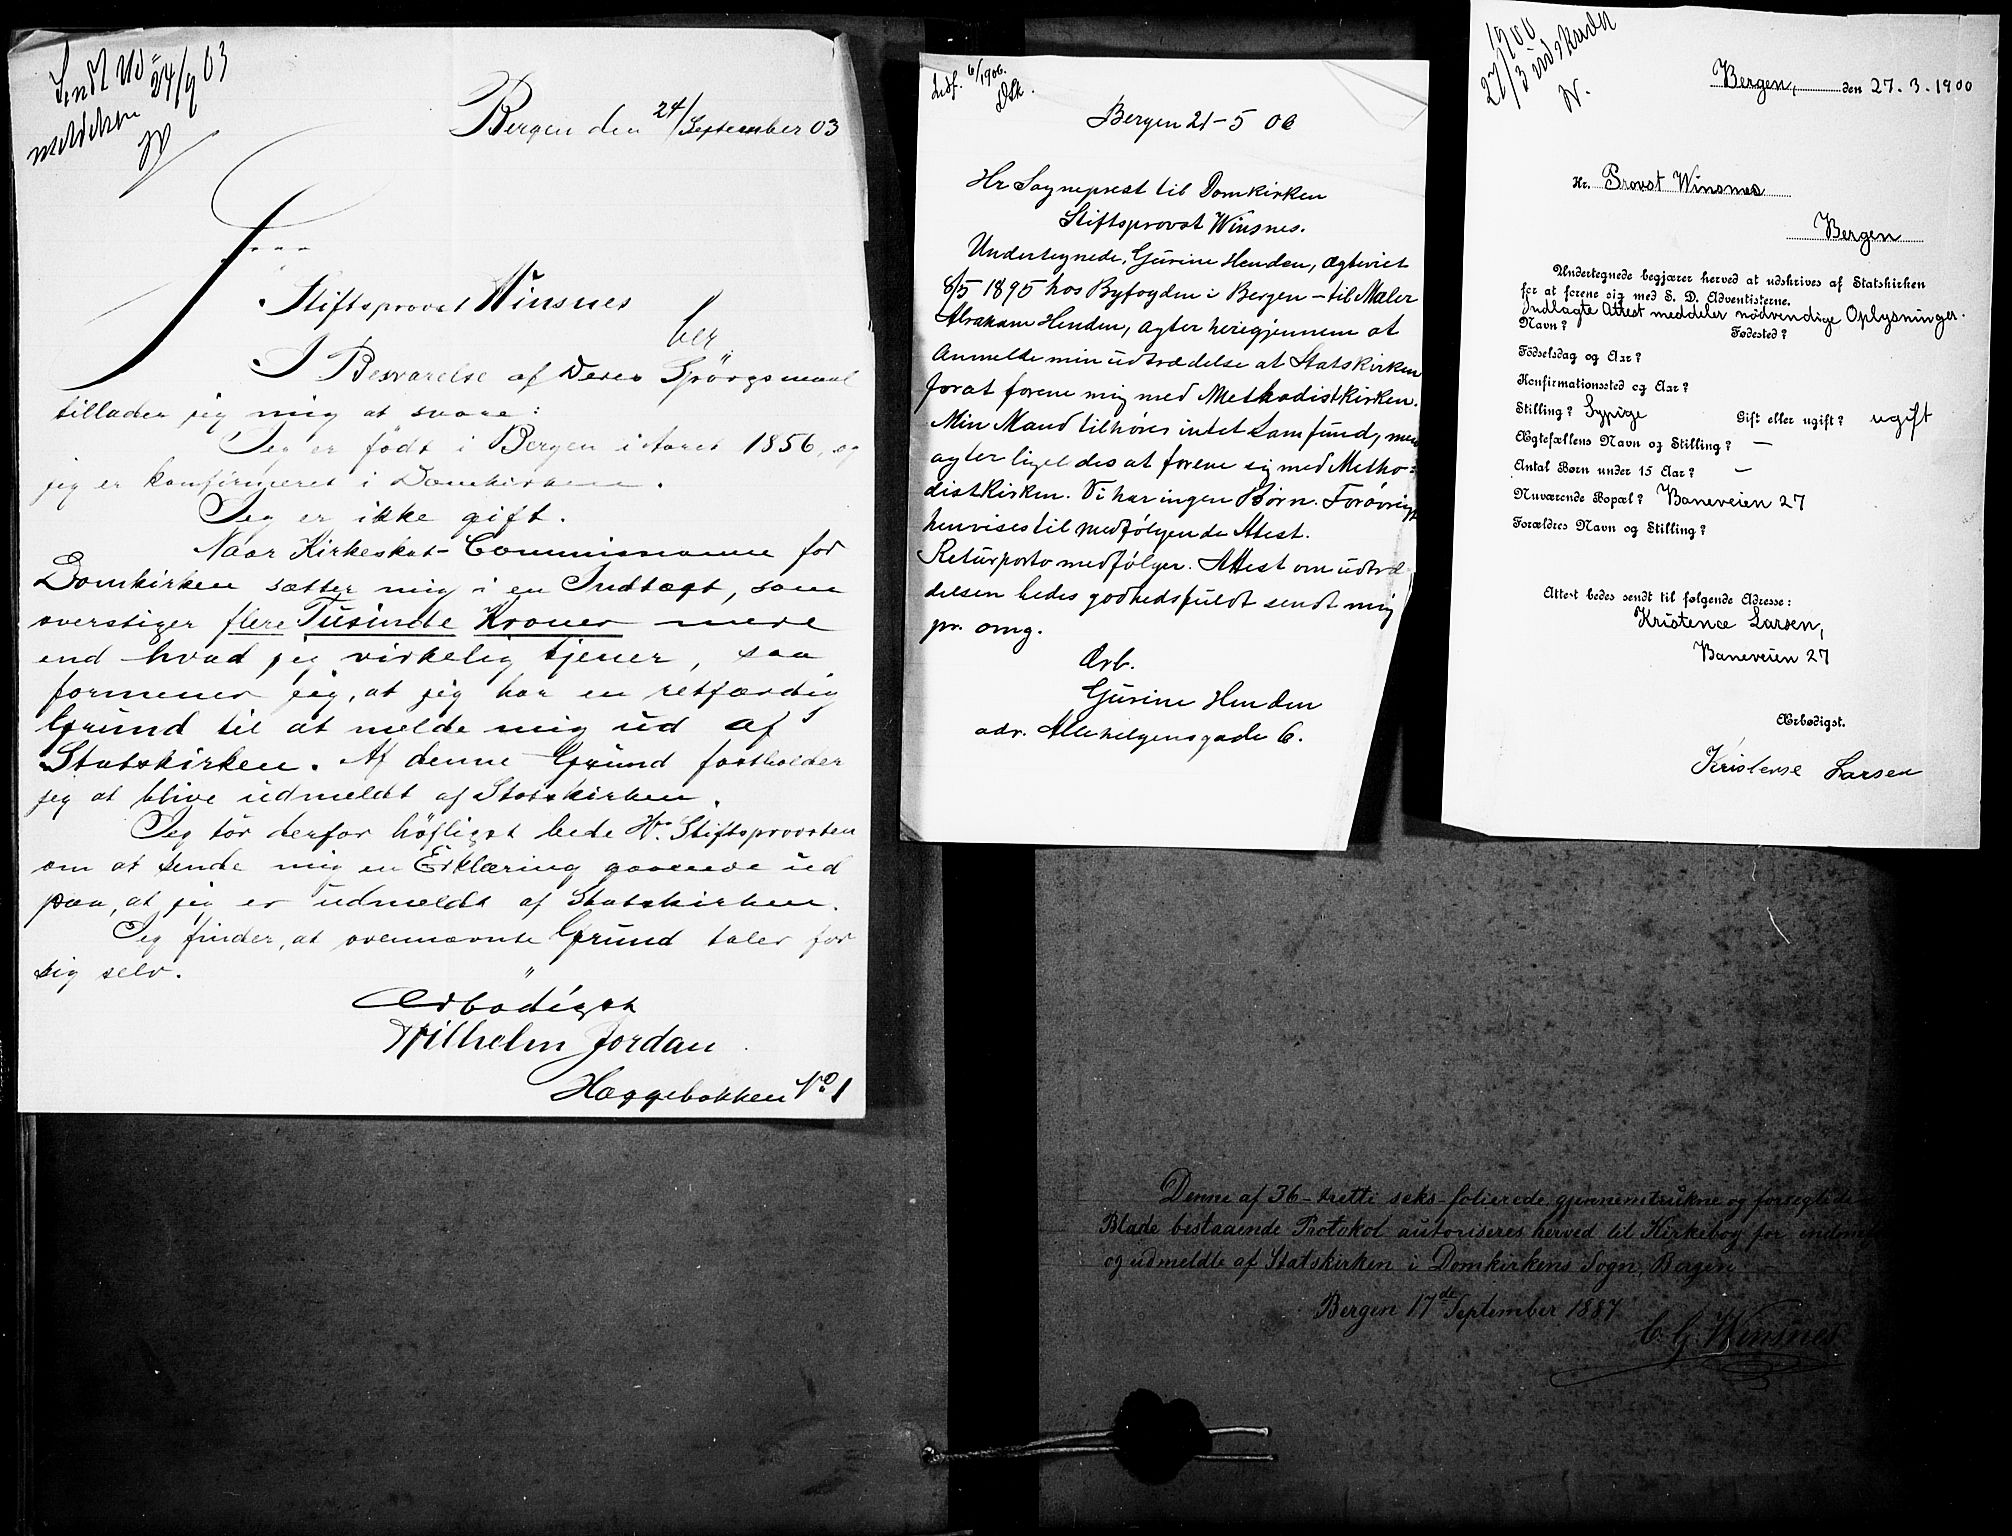 Sendt Ud-
meldelsen 24/9 03
W
Bergen den 24/September 03
Herr
Stiftsprovst Winsnes
her
I Besvarelse af Deres Spörgsmaal
tillader jeg mig at svare:
Jeg er födt i Bergen i Aaret 1856, og
jeg er konfirmeret i Domkirken.
Jeg er ikke gift.
Naar Kirkeskat-Commissionen for
Domkirken sætter mig i en Indtægt, som
overstiger flere Tusinde Kroner mere
end hvad jeg virkelig tjener, saa
formener jeg, at jeg har en retfærdig
Grund til at melde mig ud af
Statskirken. Af denne Grund fastholder
jeg at blive udmeldt af Statskirken.
Jeg tör derfor höfligst bede Hr. Stiftsprovsten
om at sende mig en Erklæring gaaende ud
paa, at jeg er udmeldt af Statskirken.
Jeg finder, at ovennævnte Grund taler for
sig selv.
Ærbödigst
Wilhelm Jordan
Hæggebakken No 1
6/1906.
Bergen 21-5 06
Hr Sogneprest til Domkirken
Stiftsprovst Winsnes.
Undertegnede, Gurine Henden, ægteviet
8/5 1895 hos Byfogden i Bergen - til Maler
Abraham Henden, agter herigjennem at
anmelde min udtrædelse at Statskirken
forat forene mig med Methodistkirken.
Min Mand tilhører intet Samfund, men
agter ligeledes at forene sig med Metho=
distkirken. Vi har ingen Børn. Forøvrigt
henvises til medfølgende Attest.
Returporto medfølger. Attest om udtræ
delsen bedes godhedsfuldt sendt mig
pr. omg.
Ærb.
Gurine Henden
adr. Allehelgensgade 6.
1900
27/3 udskrevet
W.
Bergen, den 27.3.1900
Hr. Provst Winsnes
Bergen
Undertegnede begjærer herved at udskrives af Statskirken
for at forene sig med S. D. Adventisterne.
Indlagte Attest meddeler nödvendige Oplysninger.
Navn? Fødested?
Födselsdag og Aar?
Konfirmationssted og Aar?
Stilling? Sypige Gift eller ugift? ugift
Ægtefællens Navn og Stilling? —
Antal Børn under 15 Aar? —
Nuværende Bopæl? Baneveien 27
Forældres Navn og Stilling?
Attest bedes sendt til følgende Adresse:
Kristence Larsen,
Baneveien 27
Ærbødigst.
Kristense Larsen
Denne af 36 - tretti seks - folierede gjennemtrukne og forseglede
Blade bestaaende Protokol autoriseres herved til Kirkebog for indmeldte
og udmeldte af Statskirken i Domkirkens Sogn, Bergen
Bergen 17de September 1887.
C. G. Winsnes